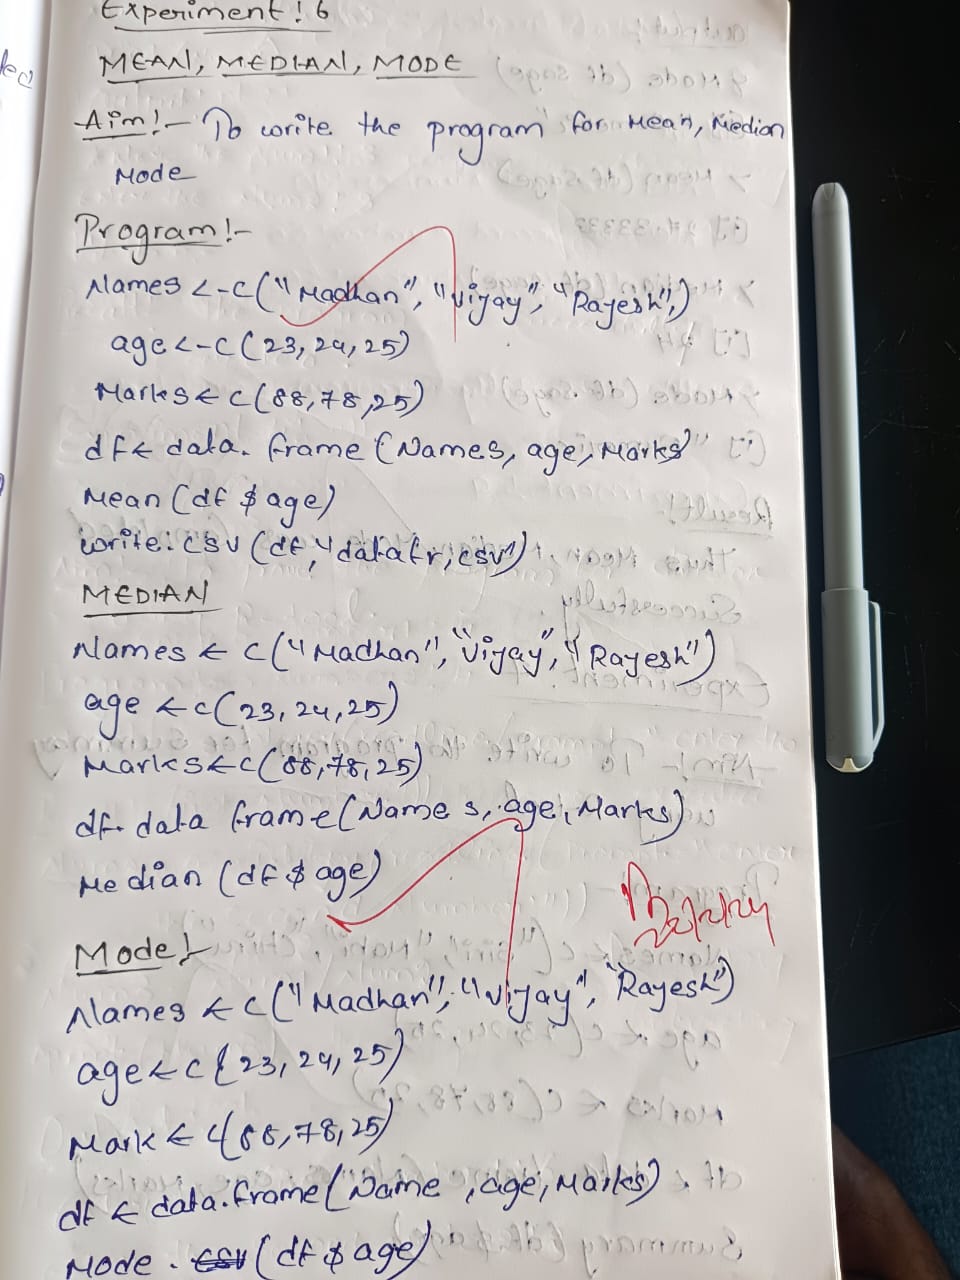 Experiment! 6
MEAN, MEDIAN, MODE
Aim!- To write the program for Mean, Median
Mode
Program!-
Names <-c("Madhan", "Vijay", "Rayesh",)
age <-c(23, 24, 25)
Marks <- c(88,78,25)
df <- data. frame (Names, age, Marks)
Mean (df $ age)
write. csv (df, "datafr, csv")
MEDIAN
Names <- c("Madhan", "Vijay", "Rayesh")
age <-c(23, 24, 25)
Marks <-c(88,78,25)
df- data frame (Name s, age, Marks)
Me dian (df $ age)
Mode!
Names <- c("Madhan", "Vijay", "Rayesh")
age <- c{23, 24, 25)
Mark <- 4(88,78,25)
df <- data.frame (Name , age, Marks)
Mode . (df $ age)